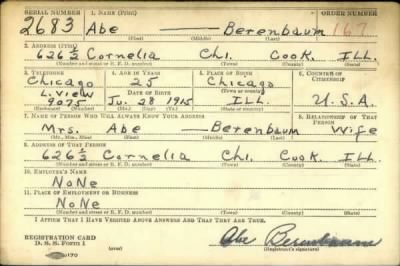 SERIAL NUMBER 1. NAME (Print) ORDER NUMBER
2683 Abe —— Berenbaum 167
(First) (Middle) (Last)
2. ADDRESS (Print)
626½ Cornelia Chi. Cook ILL.
(Number and street or R. F. D. number) (Town) (County) (State)
3. TELEPHONE 4. AGE IN YEARS 5. PLACE OF BIRTH 6. COUNTRY OF CITIZENSHIP
Chicago 25 Chicago
L. View DATE OF BIRTH (Town or county)
9075 Ju. 28 1915 ILL. U.S.A.
(Exchange) (Number) (Mo.) (Day) (Yr.) (State or country)
7. NAME OF PERSON WHO WILL ALWAYS KNOW YOUR ADDRESS 8. RELATIONSHIP OF THAT PERSON
Mrs. Abe —— Berenbaum Wife
(Mr., Mrs., Miss) (First) (Middle) (Last)
9. ADDRESS OF THAT PERSON
626½ Cornelia Chi. Cook ILL.
(Number and street or R. F. D. number) (Town) (County) (State)
10. EMPLOYER'S NAME
NoNe
11. PLACE OF EMPLOYMENT OR BUSINESS
NoNe
(Number and street or R. F. D. number) (Town) (County) (State)
I AFFIRM THAT I HAVE VERIFIED ABOVE ANSWERS AND THAT THEY ARE TRUE.
REGISTRATION CARD
D. S. S. Form 1 Abe Berenbaum
(Registrant's signature)